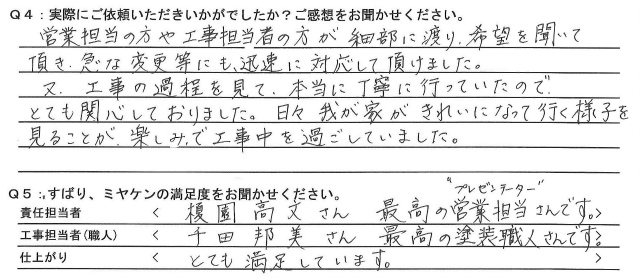 Q4：実際にご依頼いただきいかがでしたか？ご感想をお聞かせください。
営業担当の方や工事担当者の方が細部に渡り、希望を聞いて
頂き、急な変更等にも迅速に対応して頂けました。
又、工事の過程を見て、本当に丁寧に行っていたので
とても関心しておりました。日々我が家がきれいになって行く様子を
見ることが、楽しみで工事中を過ごしていました。
Q5：ずばり、ミヤケンの満足度をお聞かせください。
"プレゼンテーター"
責任担当者 < 榎園高文さん 最高の営業担当さんです。>
工事担当者(職人) < 千田邦美さん 最高の塗装職人さんです。>
仕上がり < とても満足しています。 >